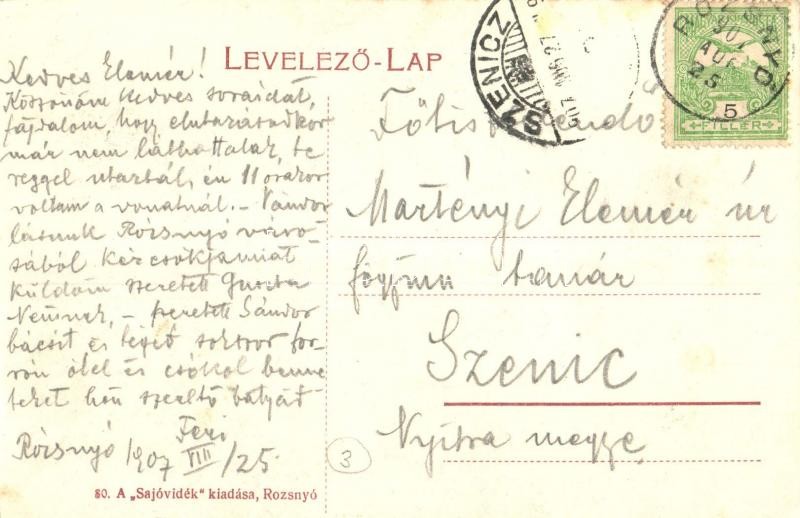 LEVELEZŐ-LAP
Kedves Elemér!
Köszönöm kedves soraidat,
fájdalom, hogy elutazásodkor
már nem láthattalak, te
reggel utaztál, én 11 órakor
voltam a vonatnál. – Vándor
Rózsnyó váro-
sából kézcsókjaimat
küldöm szeretett Guszta
Néninek, – szeretett Sándor
bácsit és téged sokszor for-
rón ölel és csókol benne-
teket hőn szerető bátyád
Feri
Rózsnyó 1907 VIII/25
80. A „Sajóvidék" kiadása, Rozsnyó
3
SZENICZ
ROZSNYÓ
907
AUG
25
5
FILLÉR
Martényi Elemér úr
tanár
Szenic
Nyitra megye